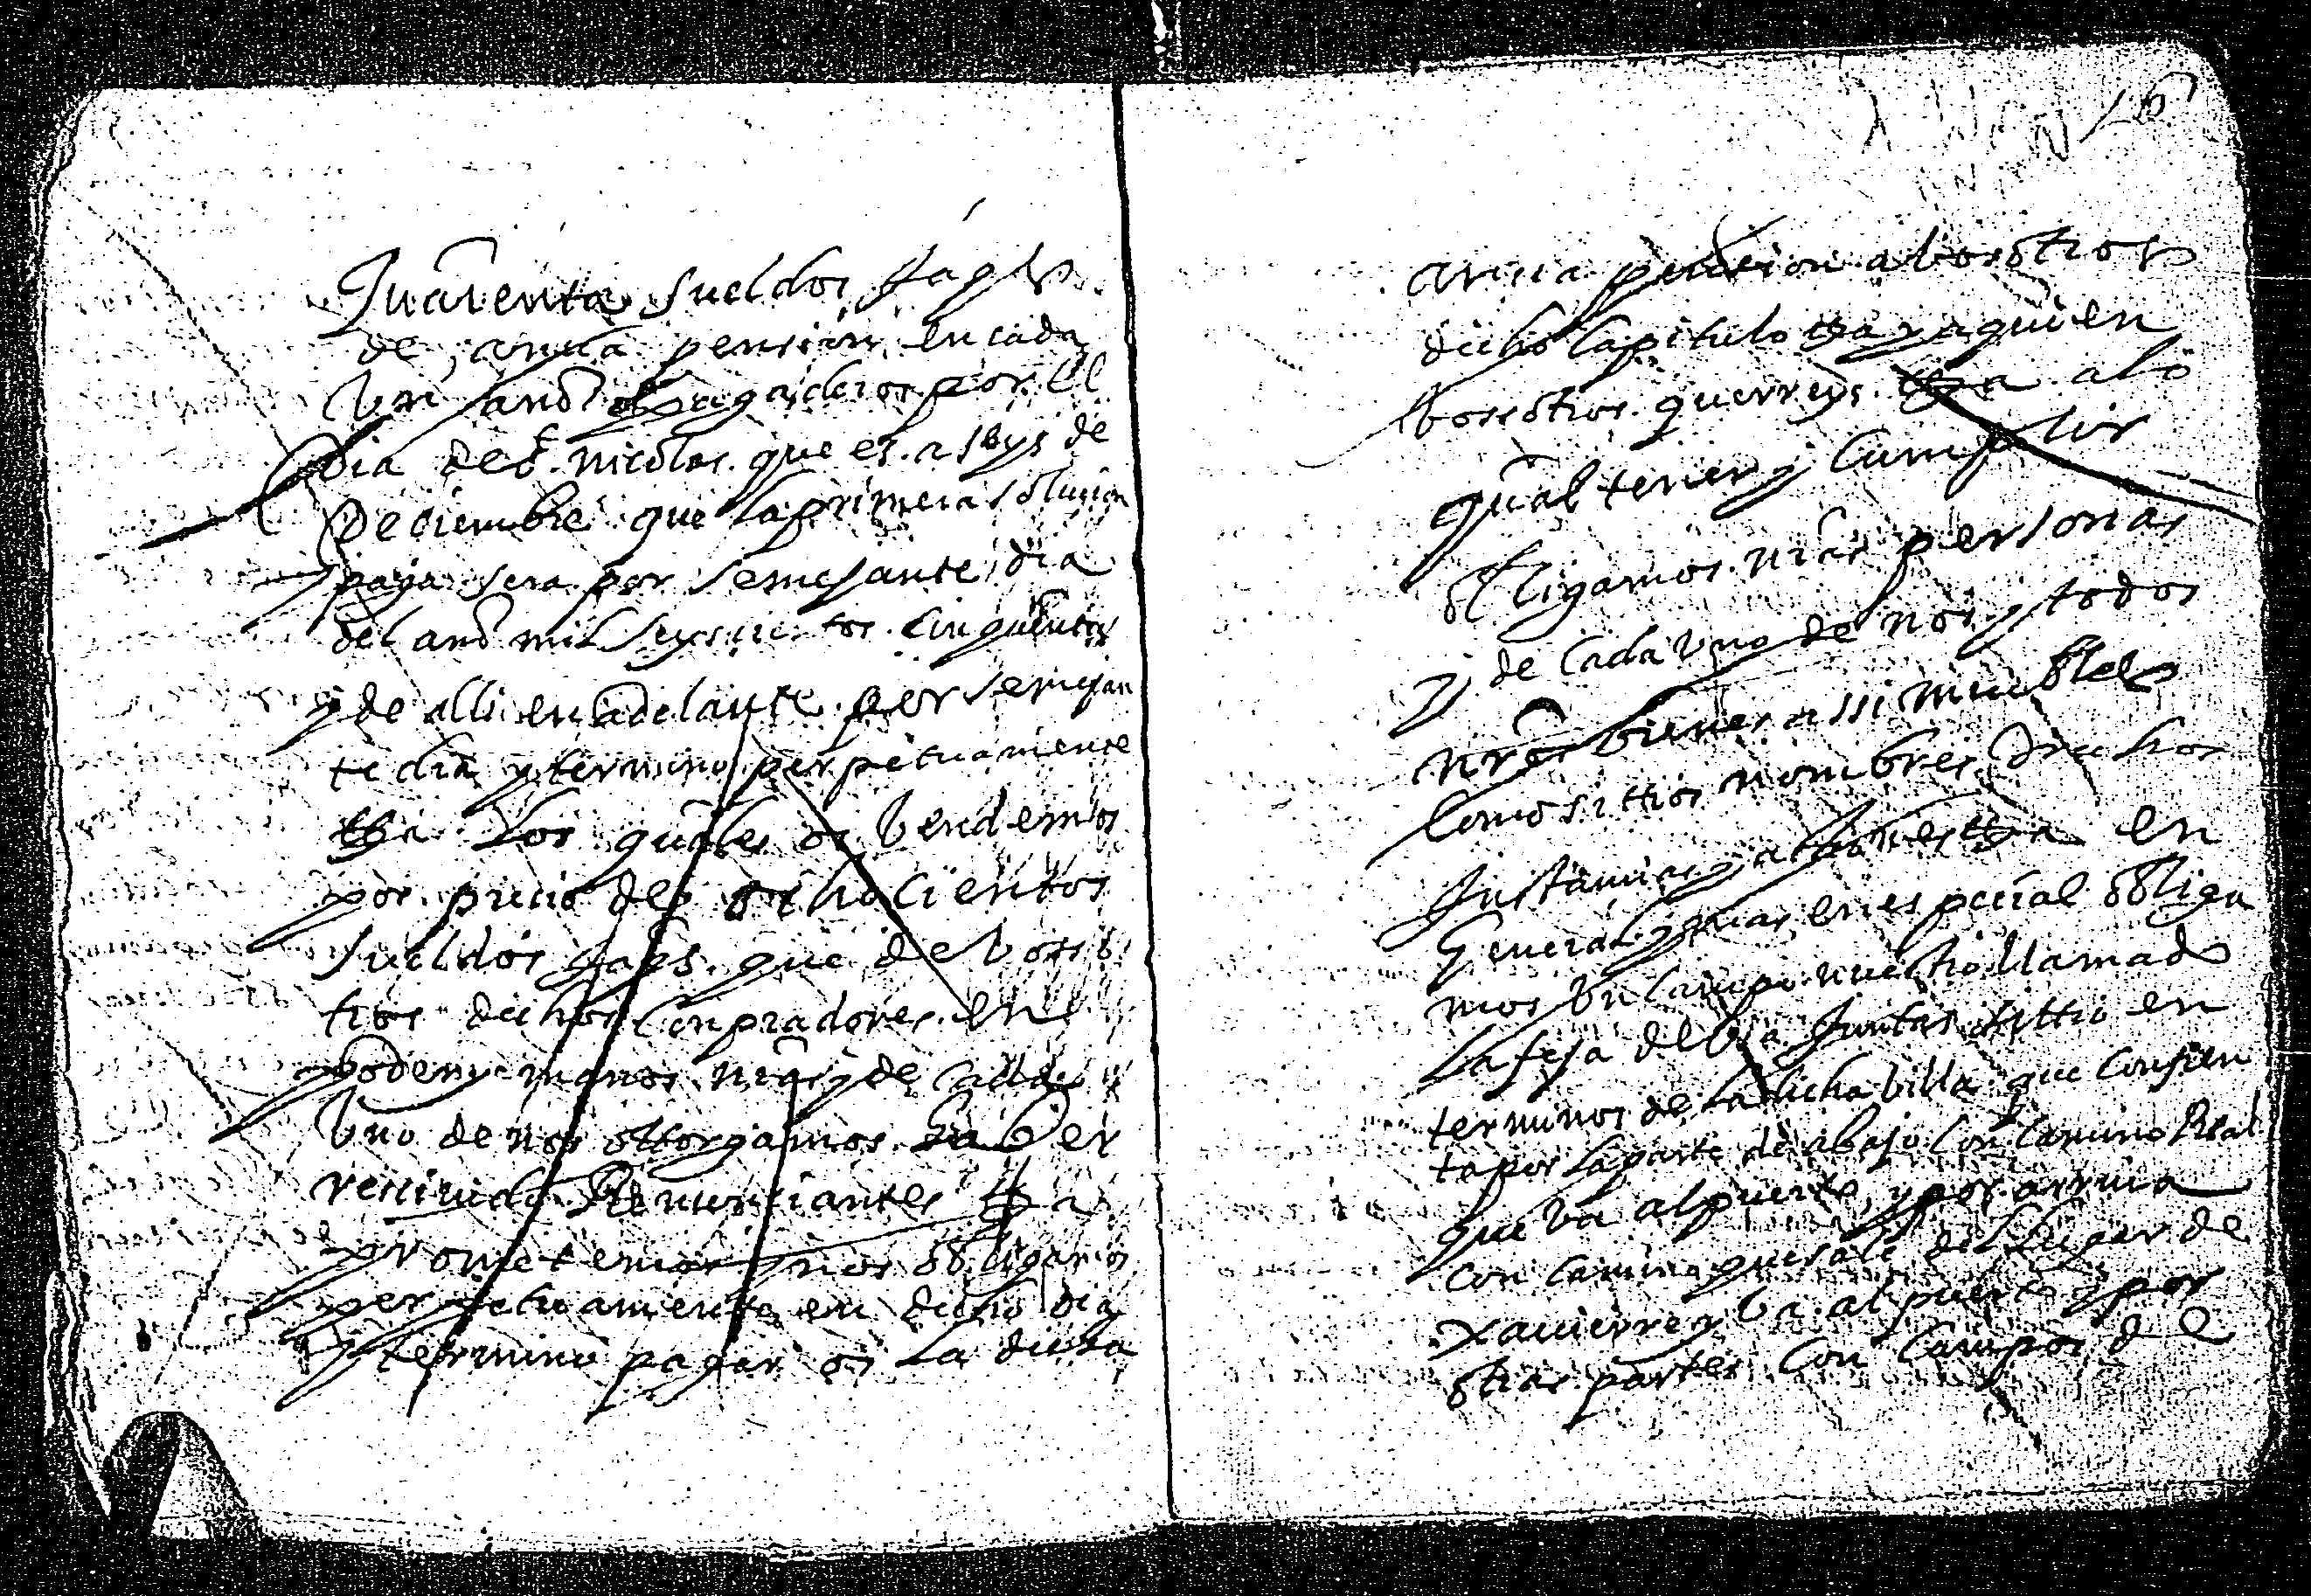 Quarenta sueldos Jaqs
de annua pension en cada
Un año pagaderos por el
Dia de S. nicolas que es a seys de
Deciembre que la primera solucion
y paga sera por semejante dia
del año mil seyscientos cinquenta
y de alli en adelante por semejan
te dia y termino perpetuamente
los quales os Vendemos
por precio de ochocientos
sueldos Jaqs. que de bosso
tros dichos Conpradores en
poder y manos nras y de cada
Uno de nos ottorgamos haber
recivido Renunciantes
prometemos y nos obligamos
perpetuamente en dicho dia
y termino pagar os la dicha
annua pension a bosotros
dicho Capitulo y a quien
bosotros querreys a lo
qual tener y Cumplir
obligamos nras personas
y de Cada Uno de nos y todos
nros bienes assi muebles
Como sittios nombres drechos
Instancias y acciones en
General y mas en especial obliga
mos Un Campo nuestro llamado
La feja de Juntas sittio en
terminos de la dicha billa que Confren
ta por la parte de abajo Con Camino Real
que ba al puerto y por arriva
con Camino que sale del lugar de
Xavierre y ba al puerto y por
otras partes Con Campos de